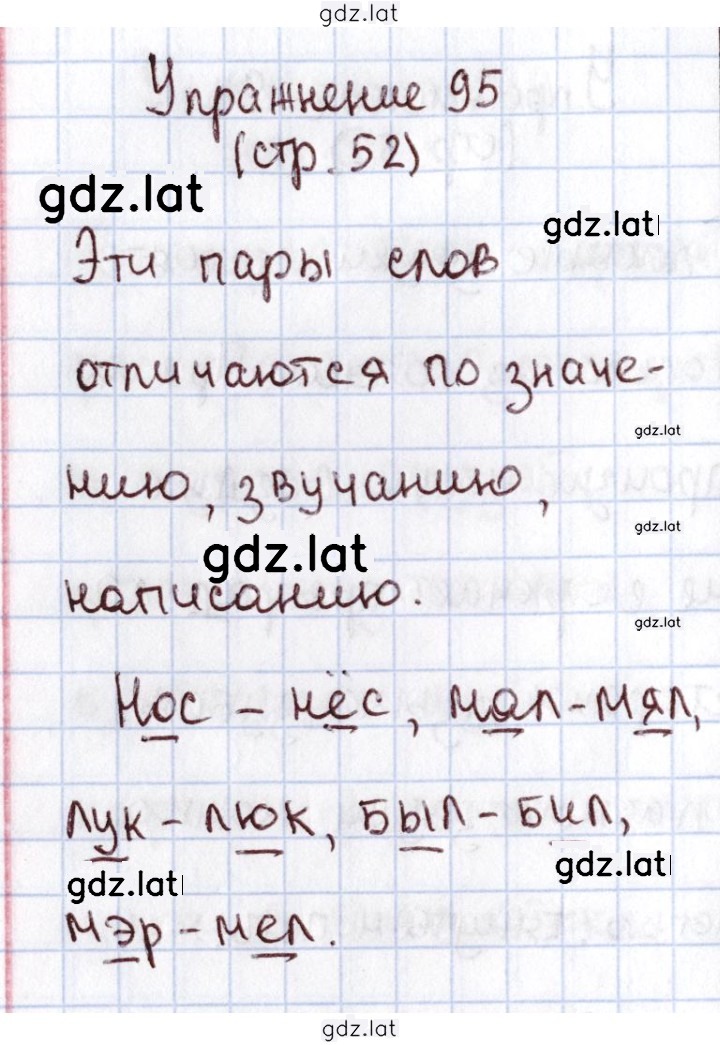 gdz.lat
Упражнение 95
(стр. 52)
gdz.lat
gdz.lat
Эти пары слов
отличаются по значе-
gdz.lat
нию, звучанию,
gdz.lat
gdz.lat
написанию.
gdz.lat
Нос – нёс, мал – мял,
лук – люк, был – бил,
gdz.lat
gdz.lat
мэр – мел.
gdz.lat